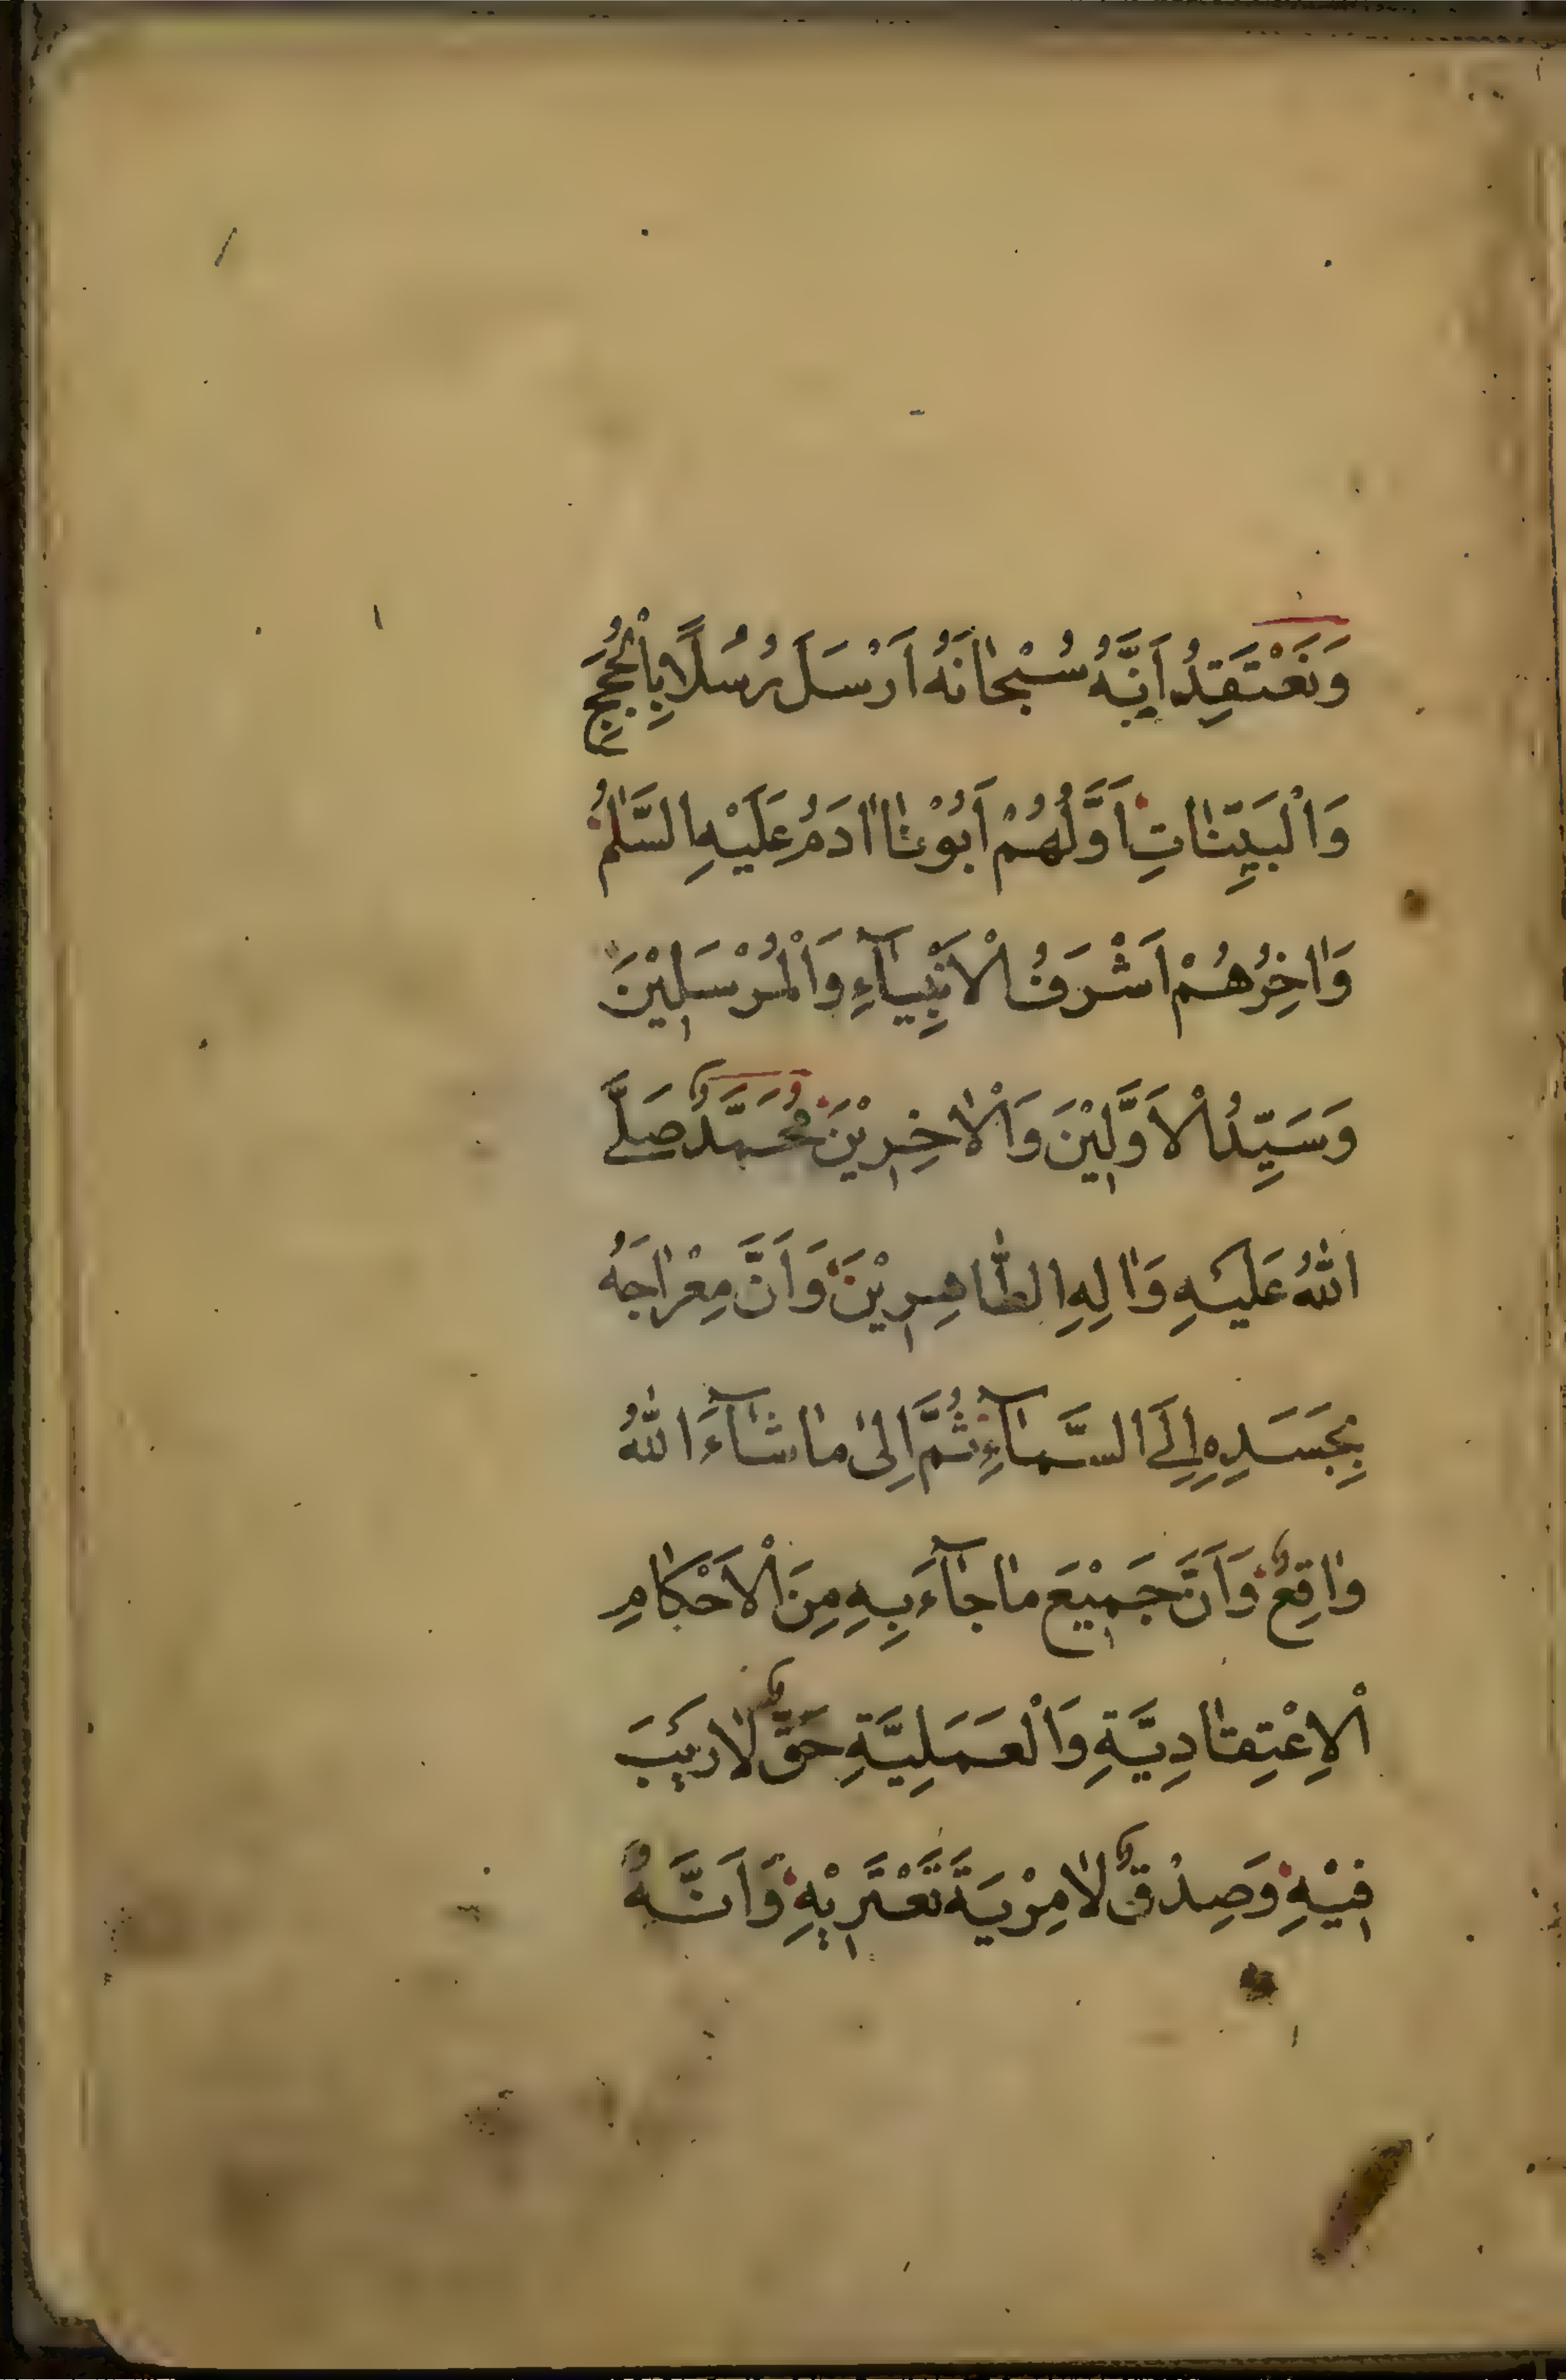 وَنَعْتَقِدُ اَنَّهُ سُبْحَانَهُ اَرْسَلَ رُسُلًا بِالْحُجَجِ
وَالْبَيِّنَاتِ اَوَّلُهُمْ اَبُوْنَا اٰدَمُ عَلَيْهِ السَّلٰمُ
وَاٰخِرُهُمْ اَشْرَفُ الْاَنْبِيَآءِ وَالْمُرْسَلِيْنَ
وَسَيِّدُ الْاَوَّلِيْنَ وَالْاٰخِرِيْنَ مُحَمَّدٌ صَلَّى
اللّٰهُ عَلَيْهِ وَاٰلِهِ الطَّاهِرِيْنَ وَاَنَّ مِعْرَاجَهُ
بِجَسَدِهِ اِلَى السَّمَآءِ ثُمَّ اِلٰى مَا شَآءَ اللّٰهُ
وَاقِعٌ وَاَنَّ جَمِيْعَ مَا جَآءَ بِهِ مِنَ الْاَحْكَامِ
الْاِعْتِقَادِيَّةِ وَالْعَمَلِيَّةِ حَقٌّ لَا رَيْبَ
فِيْهِ وَصِدْقٌ لَا مِرْيَةَ تَعْتَرِيْهِ وَاَنَّهُ